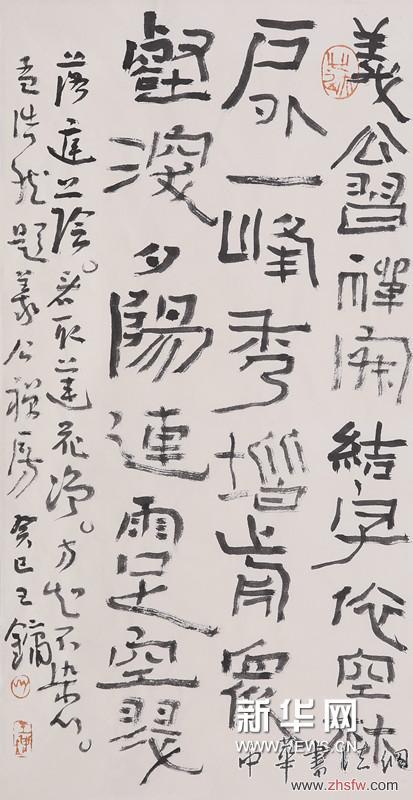 義公習禪結宇依空林
戶外一峰秀堦前眾
壑深夕陽連雨足空翠
落庭陰。看取蓮花净。方知不染心。
孟浩然題義公禪房 癸巳王鏞
新华网
中華書法網
www.zhsfw.com